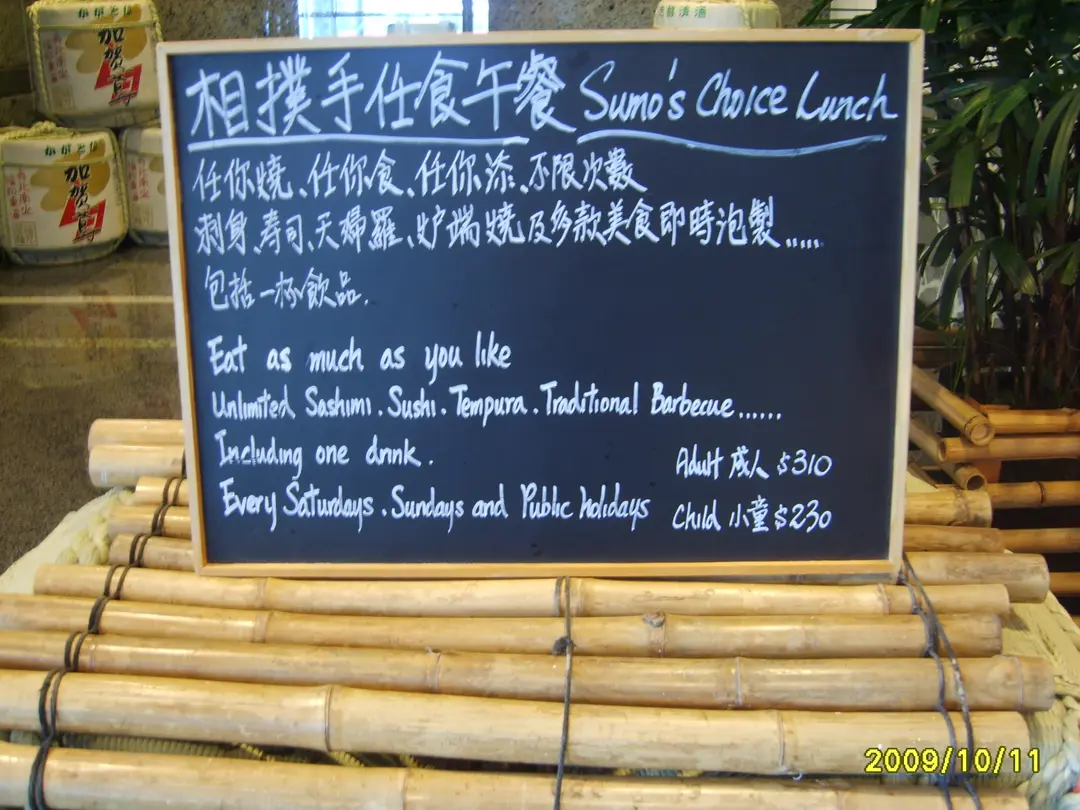 相撲手仕食午餐 Sumo's Choice Lunch
任你燒、任你食、任你添、不限次數
刺身、壽司、天婦羅、炉端燒及多款美食即時泡製......
包括一杯飲品.
Eat as much as you like
Unlimited Sashimi. Sushi. Tempura. Traditional Barbecue......
Including one drink.
Adult 成人 $310
Every Saturdays. Sundays and Public holidays
Child 小童 $230
加賀鳶
加賀鳶
2009/10/11